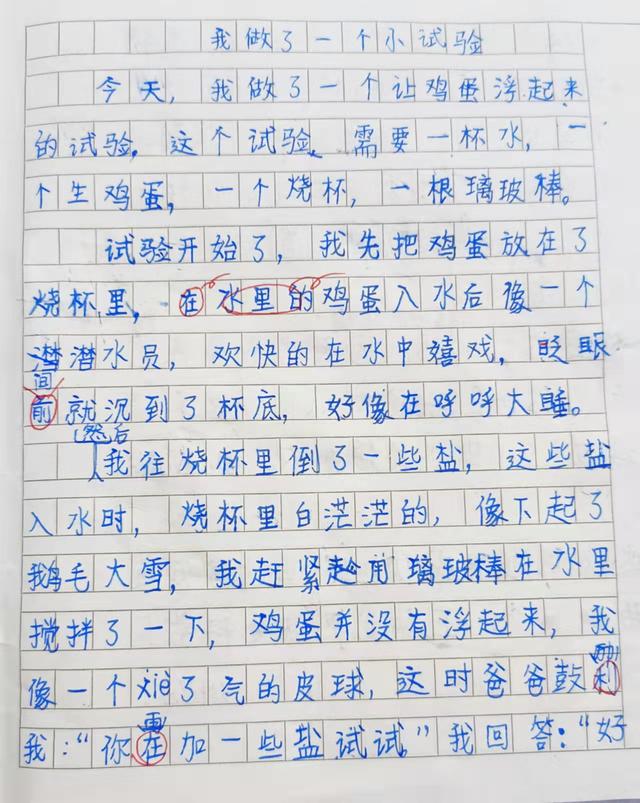 我做了一个小试验
今天，我做了一个让鸡蛋浮起来
的试验，这个试验、需要一杯水，一
个生鸡蛋，一个烧杯，一根璃玻棒。
试验开始了，我先把鸡蛋放在了
烧杯里，在水里的鸡蛋入水后像一个
潜水员，欢快的在水中嬉戏，眨眼
间
前就沉到了杯底，好像在呼呼大睡。
然后
我往烧杯里倒了一些盐，这些盐
入水时，烧杯里白茫茫的，像下起了
鹅毛大雪，我赶紧用璃玻棒在水里
搅拌了一下，鸡蛋并没有浮起来，我
励
像一个xiè了气的皮球，这时爸爸鼓利
再
我：“你在加一些盐试试”我回答：“好